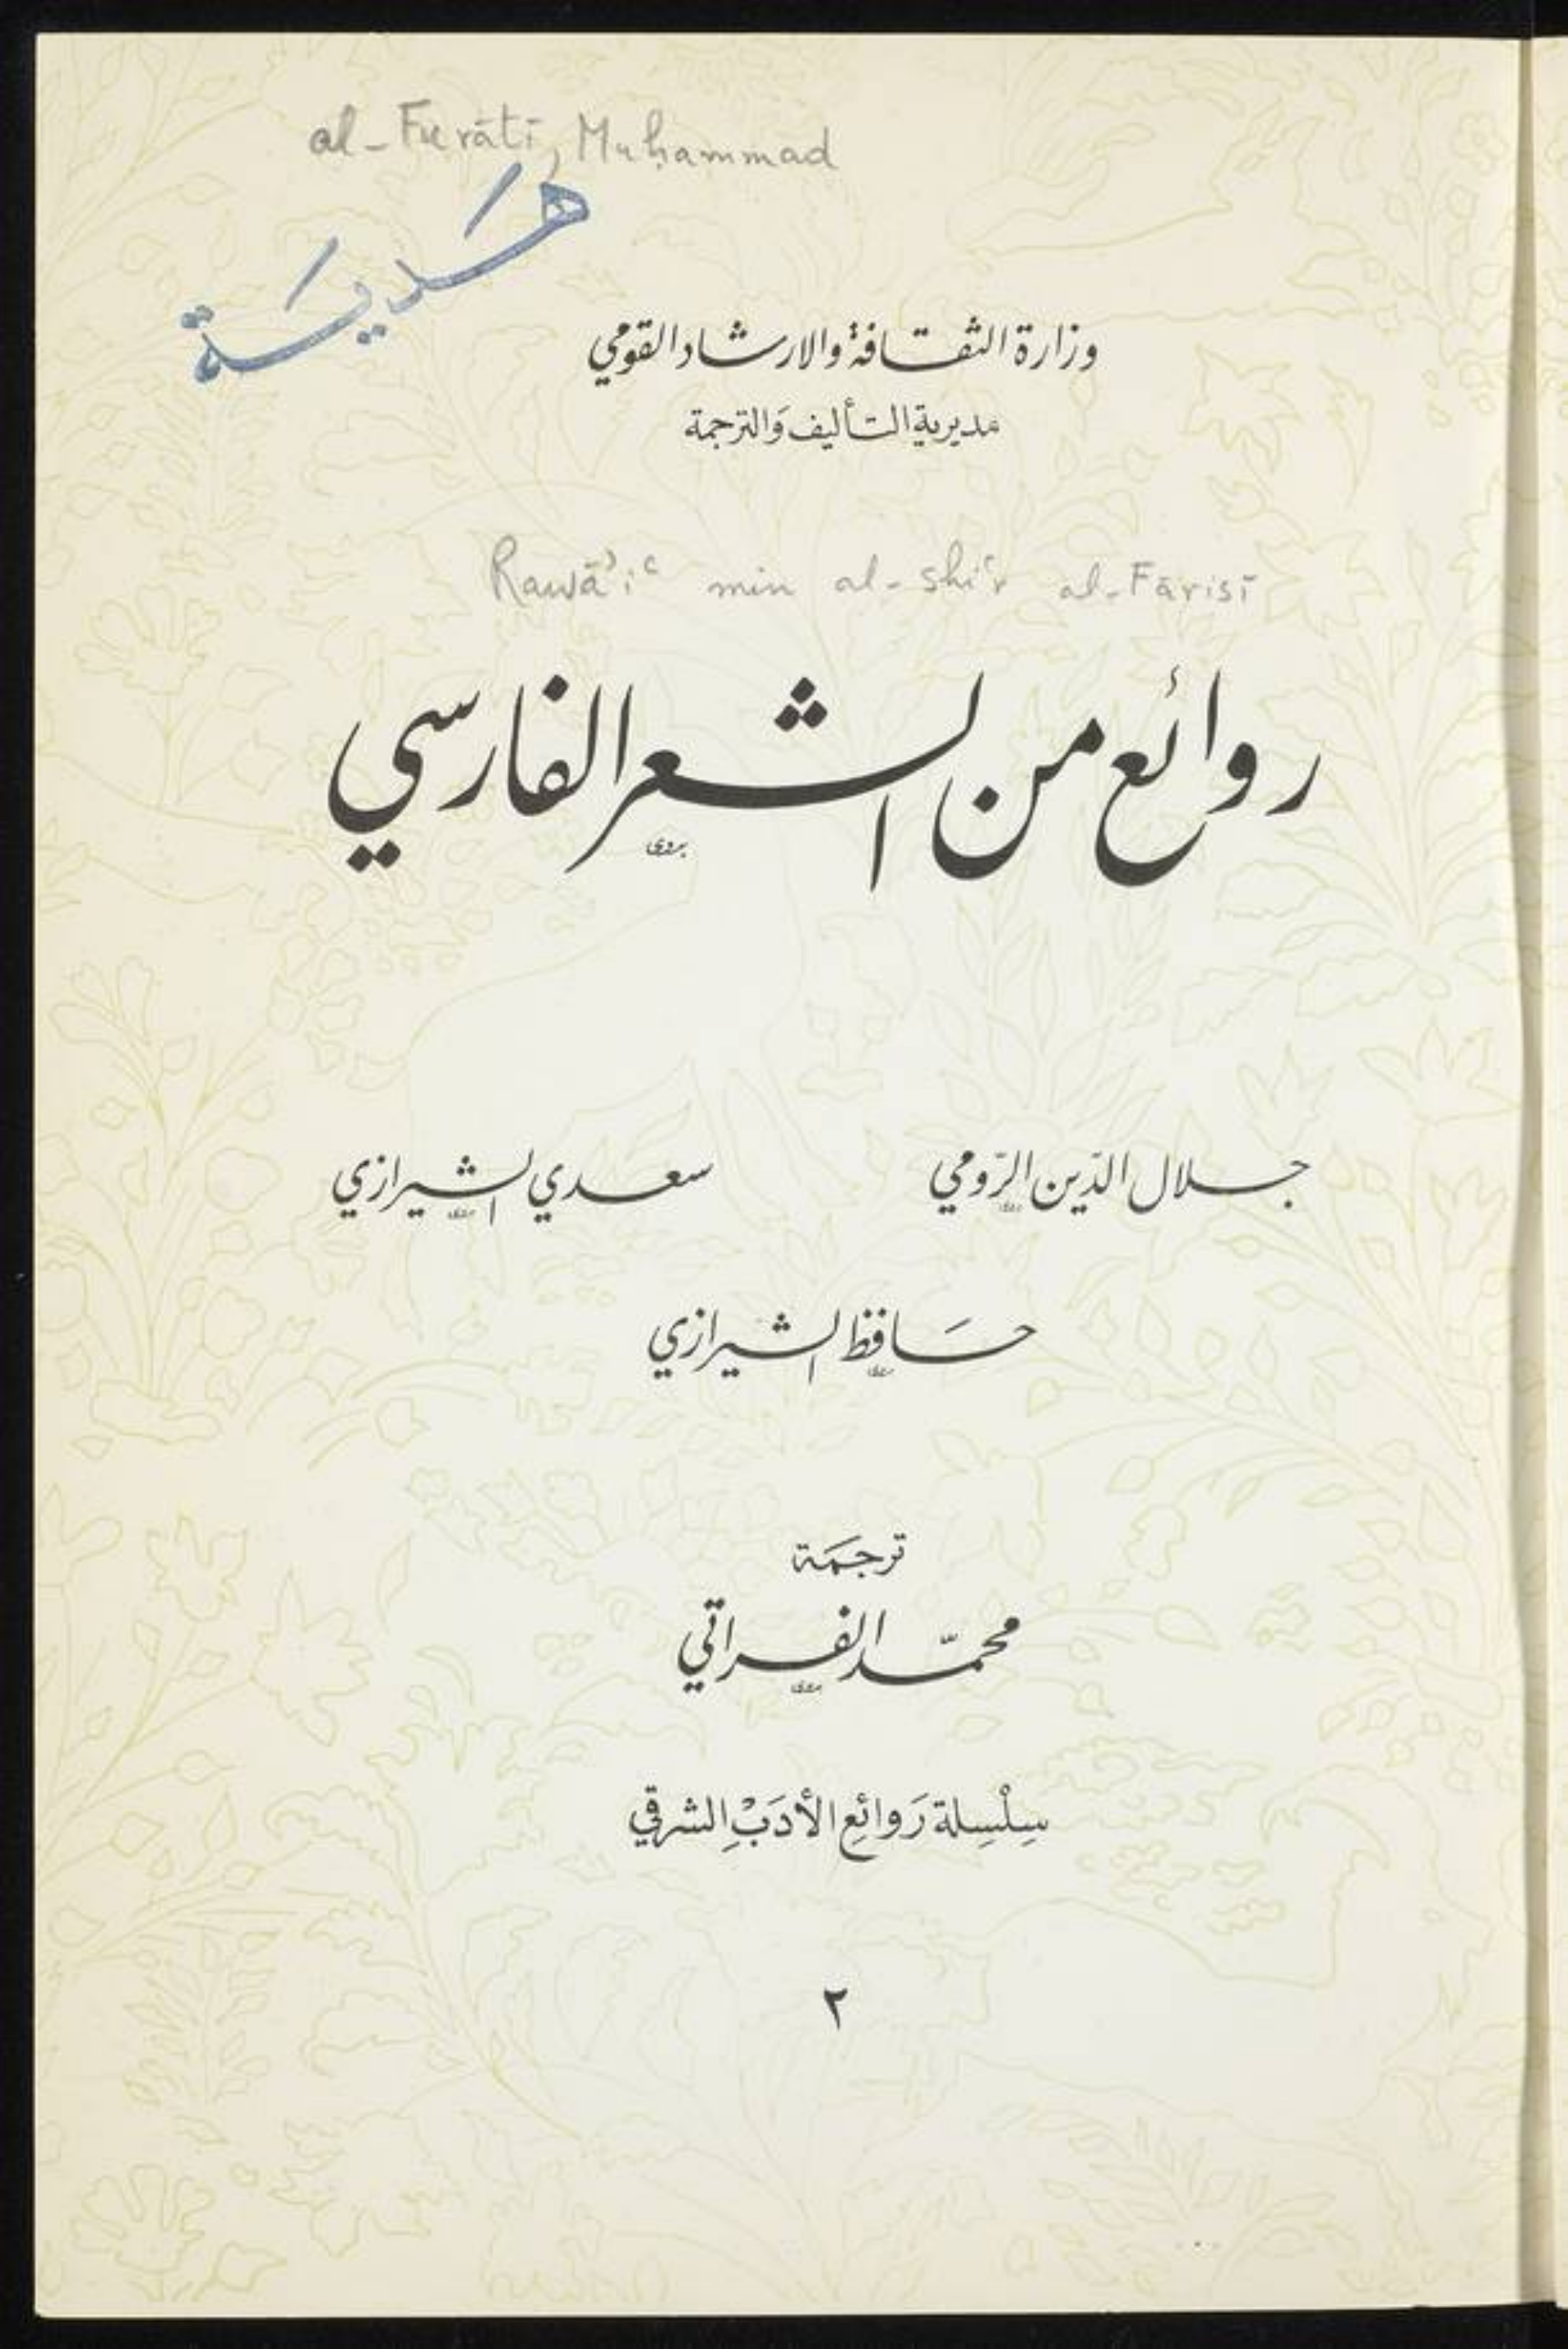 al-Furātī, Muḥammad
هَديَة
وزارة الثقافة والارشاد القومي
مديرية التأليف وَالترجمة
Rawāʾiʿ min al-shiʿr al-Fārisī
روائع من الشعر الفارسي
بدوي
جلال الدّين الرّومي
سعدي الشيرازي
حَافظ الشيرازي
ترجمَة
محمّد الفراتي
سِلْسِلة رَوائِع الأدَبْ الشرقي
٢